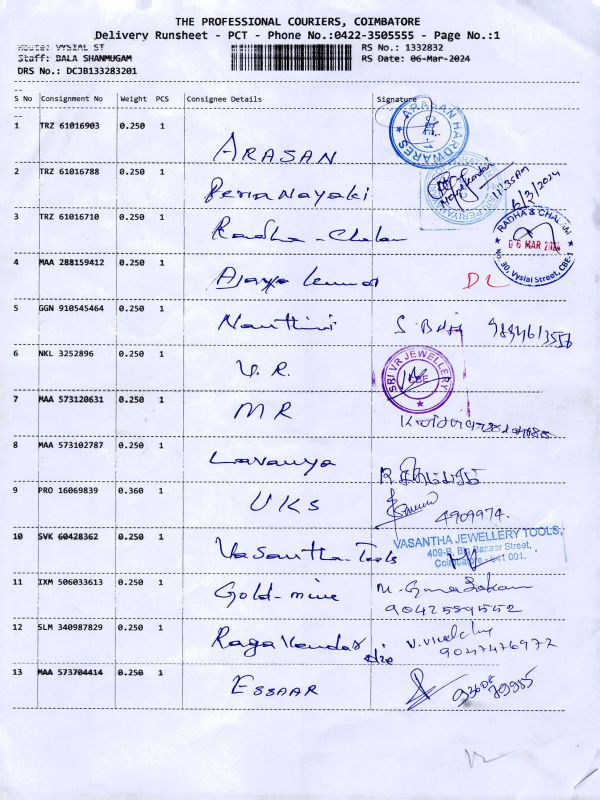 THE PROFESSIONAL COURIERS, COIMBATORE
Delivery Runsheet - PCT - Phone No.:0422-3505555 - Page No.:1
Route: VYSIAL ST
RS No.: 1332832
Staff: BALA SHANMUGAM
RS Date: 06-Mar-2024
DRS No.: DCJB133283201
S No Consignment No Weight PCS Consignee Details Signature
1 TRZ 61016903 0.250 1 ARASAN
ARASAN HARDWARES
2 TRZ 61016788 0.250 1 Peria Nayaki
11:35AM
6/3/2024
3 TRZ 61016710 0.250 1 Radha - Chalan
RADHA & CHALAN
06 MAR 2024
No. 30, Vysial Street, CBE-1
4 MAA 288159412 0.250 1 Ajaya Kumar DL
5 GGN 910545464 0.250 1 Nanthini
6 NKL 3252896 0.250 1 V. R.
SRI VR JEWELLERY
CBE
7 MAA 573120631 0.250 1 MR
8 MAA 573102787 0.250 1 Lavanya
9 PRO 16069839 0.360 1 UKS
4909974.
10 SVK 60428362 0.250 1 Vasantha-Tools
VASANTHA JEWELLERY TOOLS,
409-B, Big Bazaar Street,
Coimbatore - 641 001.
11 IXM 506033613 0.250 1 Gold-mine
9042589552
12 SLM 340987829 0.250 1
9047476972
13 MAA 573704414 0.250 1 ESSAAR